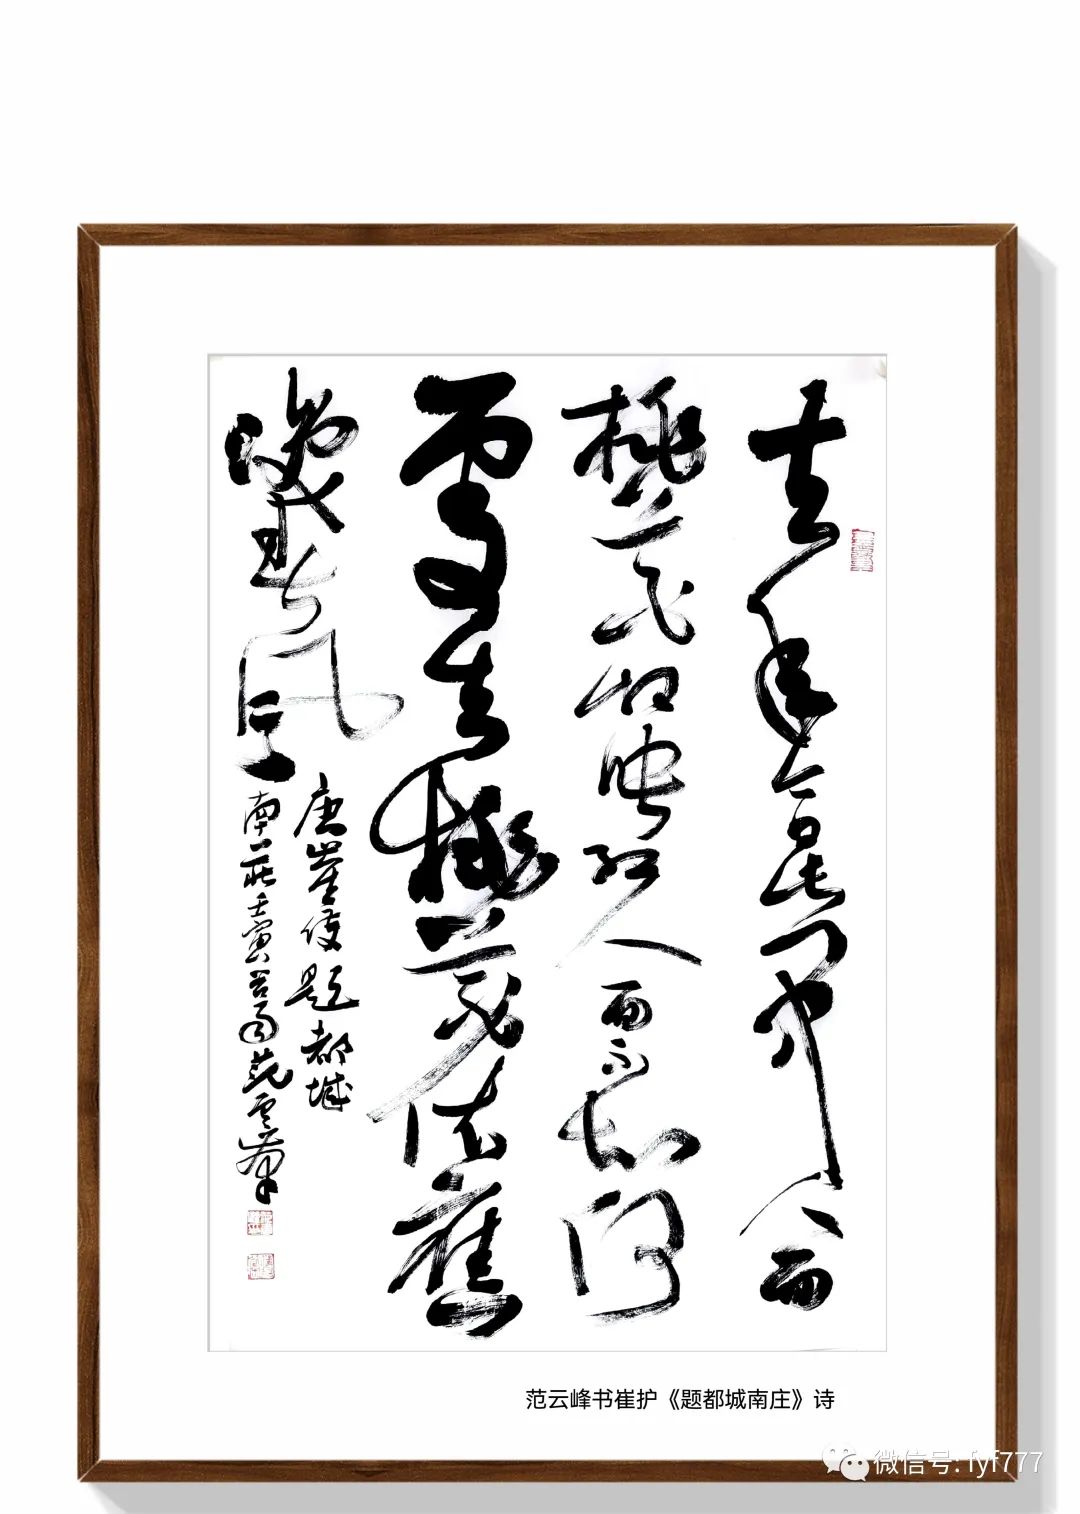 去年今日此門中人面
桃花相映紅人面不知何
處去桃花依舊
笑春風
唐崔護題都城
南莊壬寅范雲峯
范云峰书崔护《题都城南庄》诗
微信号: fyf777